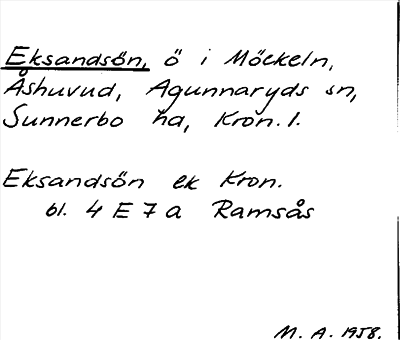 Eksandsön, ö i Möckeln,
Åshuvud, Agunnaryds sn,
Sunnerbo hd, Kron. l.
Eksandsön ek Kron.
bl. 4 E 7 a Ramsås
M. A. 1958.